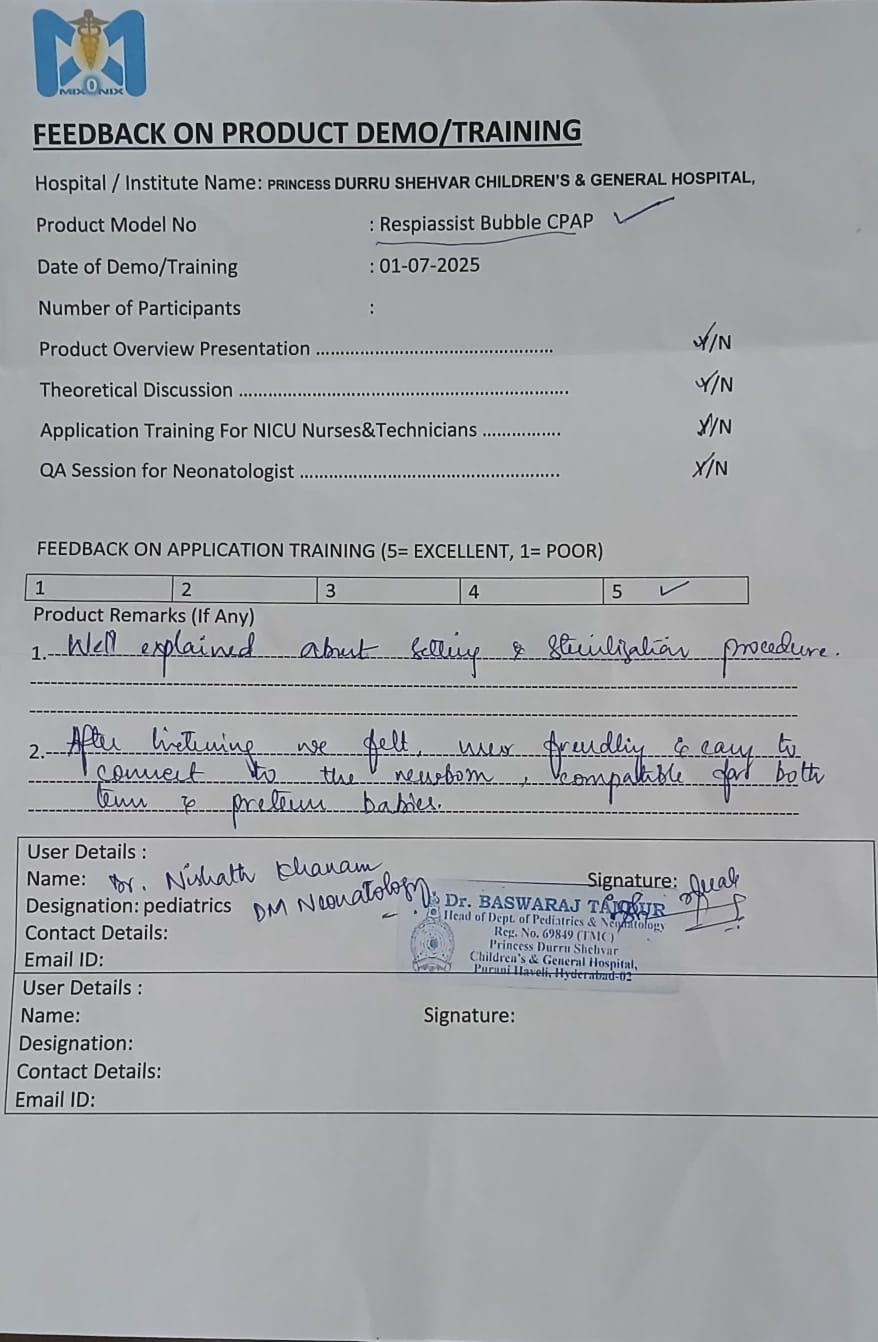 MIXONIX
FEEDBACK ON PRODUCT DEMO/TRAINING
Hospital / Institute Name: PRINCESS DURRU SHEHVAR CHILDREN'S & GENERAL HOSPITAL,
Product Model No : Respiassist Bubble CPAP
Date of Demo/Training : 01-07-2025
Number of Participants :
Product Overview Presentation ................................................ Y/N
Theoretical Discussion .................................................................... Y/N
Application Training For NICU Nurses&Technicians ................ Y/N
QA Session for Neonatologist ..................................................... Y/N
FEEDBACK ON APPLICATION TRAINING (5= EXCELLENT, 1= POOR)
1 2 3 4 5 ✓
Product Remarks (If Any)
1. Well explained about setting & sterilization procedure.
2. After listening we felt, user friendly & easy to
connect to the newborn, compatible for both
term & preterm babies.
User Details :
Name: Dr. Nishath Khanam Signature:
Designation: pediatrics DM Neonatology
Dr. BASWARAJ
Head of Dept. of Pediatrics & Neonatology
Reg. No. 69849 (TMC)
Princess Durru Shehvar
Children's & General Hospital,
Purani Haveli, Hyderabad-02
Contact Details:
Email ID:
User Details :
Name: Signature:
Designation:
Contact Details:
Email ID: